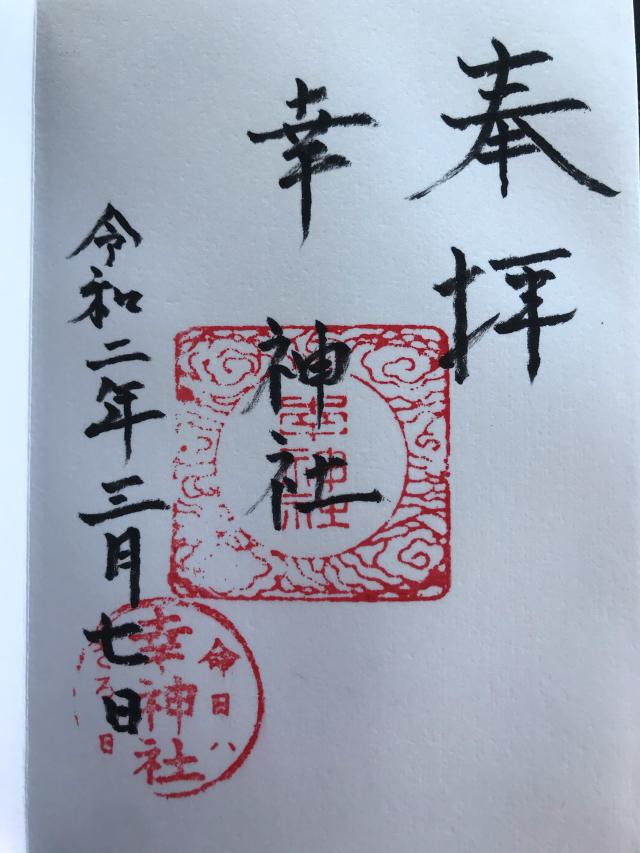 奉拝
幸神社
幸神社
令和二年三月七日
命日ハ
幸神社